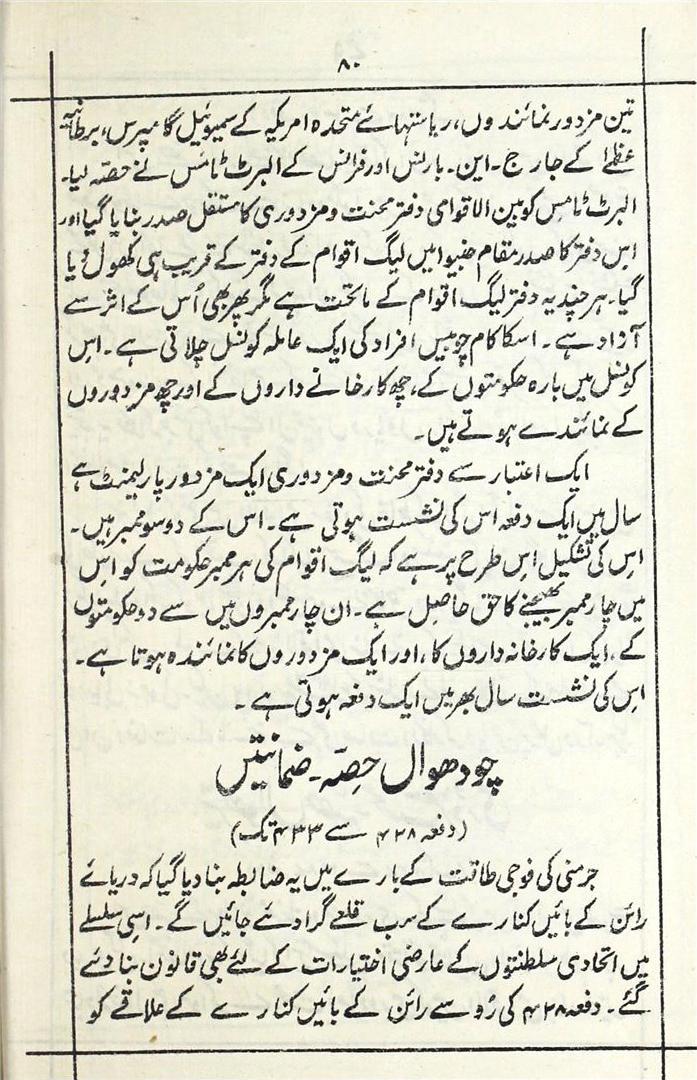 ۸۰
تین مزدور نمائندوں، ریاستہائے متحدہ امریکہ کے سمیوئیل گامپرس، برطانیہ
عظمیٰ کے جارج۔ این۔ بارنس اور فرانس کے البرٹ ٹامس نے حصہ لیا۔
البرٹ ٹامس کو بین الاقوامی دفتر محنت و مزدوری کا مستقل صدر بنایا گیا اور
اس دفتر کا صدر مقام جنیوا میں لیگ اقوام کے دفتر کے قریب ہی کھول دیا
گیا۔ ہر چند یہ دفتر لیگ اقوام کے ماتحت ہے مگر پھر بھی اُس کے اثر سے
آزاد ہے۔ اسکا کام چوبیس افراد کی ایک عاملہ کونسل چلاتی ہے۔ اس
کونسل میں بارہ حکومتوں کے، چھ کارخانے داروں کے اور چھ مزدوروں
کے نمائندے ہوتے ہیں۔
ایک اعتبار سے دفتر محنت و مزدوری ایک مزدور پارلیمنٹ ہے
سال میں ایک دفعہ اس کی نشست ہوتی ہے۔ اس کے دوسو ممبر ہیں۔
اس کی تشکیل اس طرح پر ہے کہ لیگ اقوام کی ہر ممبر حکومت کو اس
میں چار ممبر بھیجنے کا حق حاصل ہے۔ ان چار ممبروں میں سے دو حکومتوں
کے، ایک کارخانہ داروں کا، اور ایک مزدوروں کا نمائندہ ہوتا ہے۔
اس کی نشست سال بھر میں ایک دفعہ ہوتی ہے۔
چودھواں حصہ۔ ضمانتیں
(دفعہ ۴۲۸ سے ۴۳۳ تک)
جرمنی کی فوجی طاقت کے بارے میں یہ ضابطہ بنا دیا گیا کہ دریائے
رائن کے بائیں کنارے کے سب قلعے گرا دئے جائیں گے۔ اسی سلسلے
میں اتحادی سلطنتوں کے عارضی اختیارات کے لئے بھی قانون بنا دئے
گئے۔ دفعہ ۴۲۸ کی رُو سے رائن کے بائیں کنارے کے علاقے کو